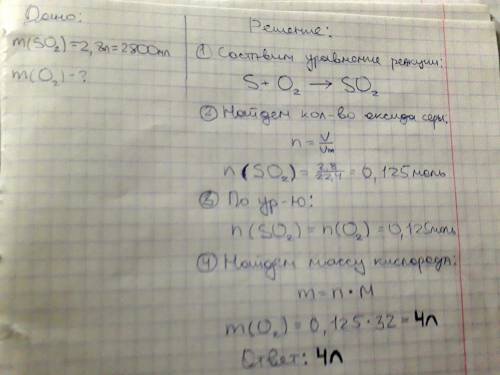 Дано:
m(SO₂)=2,8л=2800мл
m(O₂)-?
Решение:
① Составим уравнение реакции:
S+O₂ → SO₂
② Найдем кол-во оксида серы:
n = V/Vm
n(SO₂) = 2,8/22,4 = 0,125моль
③ По ур-ю:
n(SO₂) = n(O₂) = 0,125моль
④ Найдем массу кислорода:
m = n · M
m(O₂) = 0,125 · 32 = 4л
Ответ: 4л